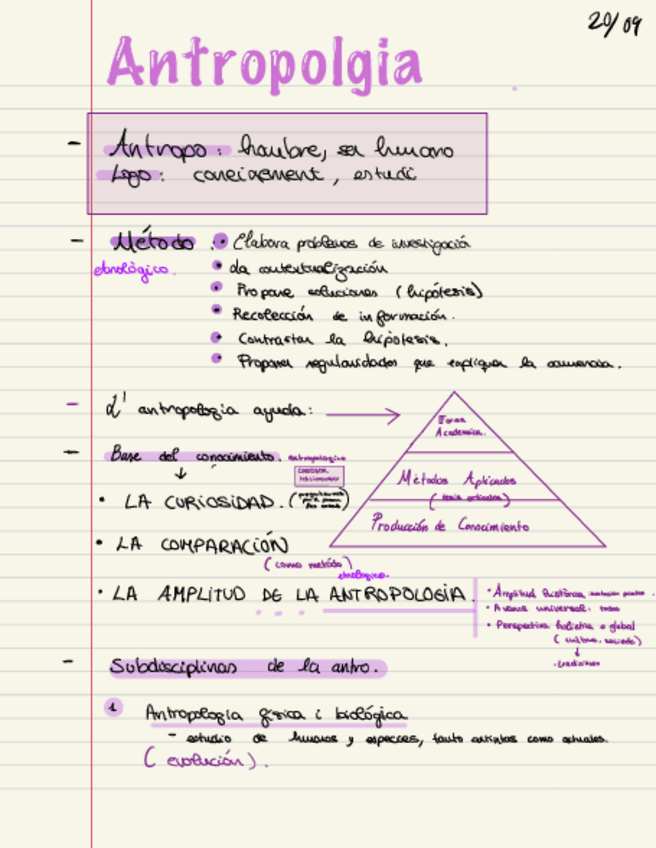 20/09
Antropolgia
- Antropo: hombre, ser humano
Logo: coneixement, estudi
- Método:
etnològico.
• Elabora problemas de investigación
• da contextualización
• Propone soluciones (hipótesis)
• Recolección de información.
• Contrastar la hipótesis.
• Proponer regularidades que expliquen la
- L'antropologia ayuda:
Forma
Académica.
Métodos Aplicados
Producción de Conocimiento
- Base del conocimiento. antropológico
• LA CURIOSIDAD.
• LA COMPARACIÓN
(como metódo)
etnològico.
• LA AMPLITUD DE LA ANTROPOLOGÍA
• Amplitud histórica
• Avance universal: todos
• Perspectiva holística o global
(cultura, sociedad)
- Subdisciplinas de la antro.
1 Antropología física i biológica
- estudio de humanos y especies, tanto extintas como actuales.
(evolución).